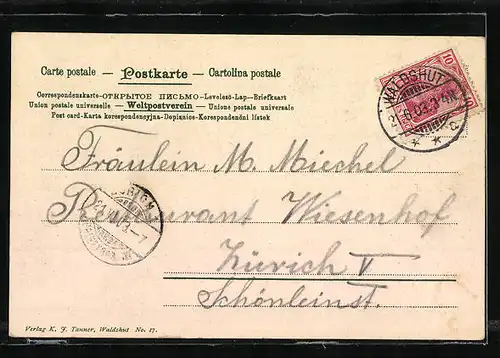 Carte postale – Postkarte – Cartolina postale
Correspondenskarte–ОТКРЫТОЕ ПИСЬМО–Levelező-Lap–Briefkaart
Union postale universelle – Weltpostverein – Unione postale universale
Post card-Karta korespondencyjna-Dopisnice-Korespondenční lístek
10
10
WALDSHUT
Fräulein M. Miechel
Restaurant Wiesenhof
Zürich V
Schönleinst.
Verlag K. J. Tanner, Waldshut No. 17.